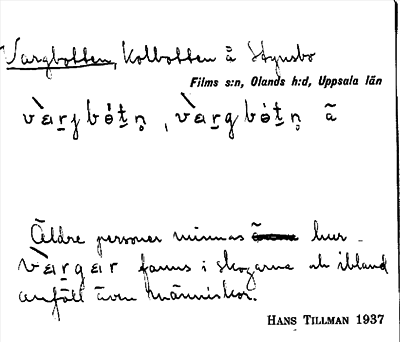 Vargbotten, Kolbotten å Stynsbo
Films s:n, Olands h:d, Uppsala län
Äldre personer minnas hur
fanns i skogarna och ibland
anföll även människor.
HANS TILLMAN 1937